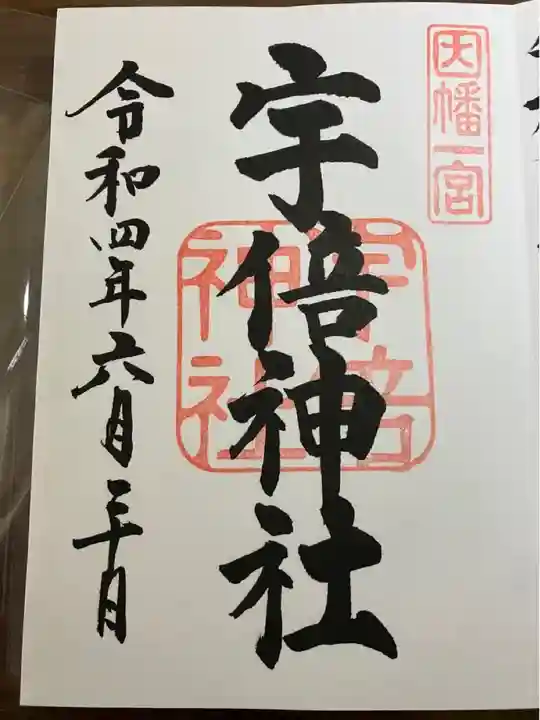 因幡一宮
宇倍神社
宇倍神社
令和四年六月三十日